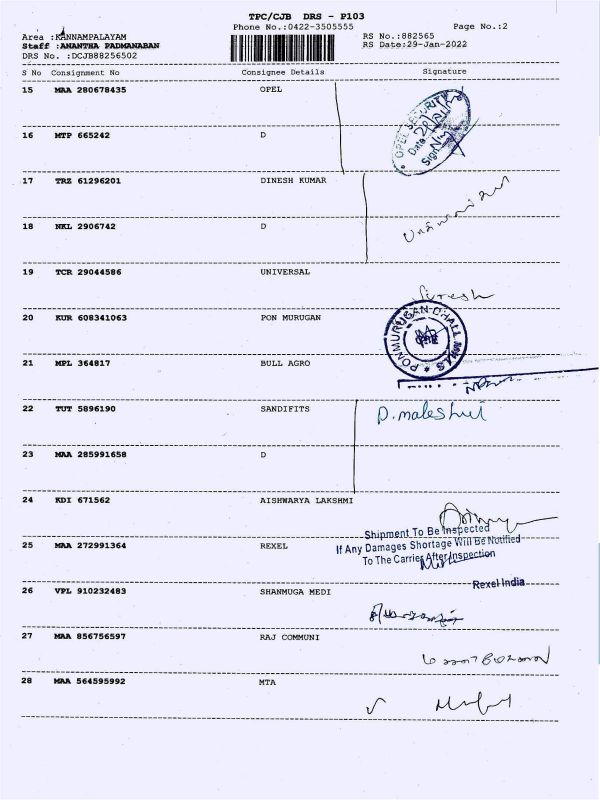 TPC/CJB DRS - P103
Phone No.:0422-3505555
Page No.:2
Area :KANNAMPALAYAM
RS No.:882565
Staff :ANANTHA PADMANABAN
RS Date:29-Jan-2022
DRS No. :DCJB88256502
S No Consignment No Consignee Details Signature
15 MAA 280678435 OPEL
OPEL SECURITY
Date
Sign
16 MTP 665242 D
17 TRZ 61296201 DINESH KUMAR
18 NKL 2906742 D
19 TCR 29044586 UNIVERSAL
Suresh
20 KUR 608341063 PON MURUGAN
PONMURUGAN DHALL MILLS
21 MPL 364817 BULL AGRO
22 TUT 5896190 SANDIFITS
23 MAA 285991658 D
24 KDI 671562 AISHWARYA LAKSHMI
Shipment To Be Inspected
If Any Damages Shortage Will Be Notified
To The Carrier After Inspection
Rexel India
25 MAA 272991364 REXEL
26 VPL 910232483 SHANMUGA MEDI
27 MAA 856756597 RAJ COMMUNI
28 MAA 564595992 MTA